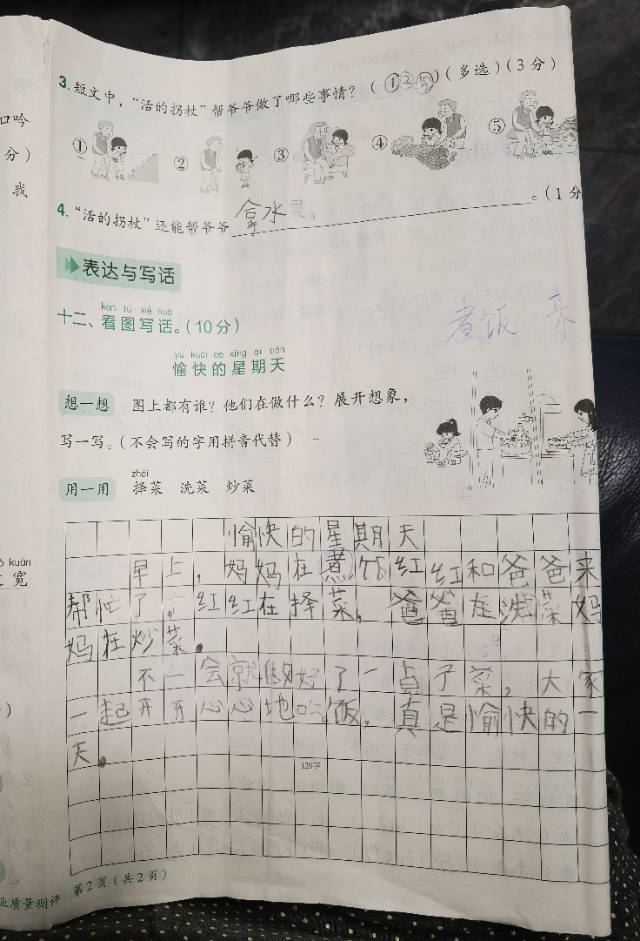 口吟
分）
我
3.短文中，“活的拐杖”帮爷爷做了哪些事情？（①③⑤）（多选）（3分）
① ② ③ ④ ⑤
4.“活的拐杖”还能帮爷爷拿水果。。（1分
表达与写话
kàn tú xiě huà
十二、看图写话。（10分）
煮饭 来
yú kuài de xīng qī tiān
愉快的星期天
想一想 图上都有谁？他们在做什么？展开想象，
写一写。（不会写的字用拼音代替）
zhái
用一用 择菜 洗菜 炒菜
kuān
宽
愉快的星期天
早上，妈妈在煮饭红红和爸爸来
帮忙了。红红在择菜，爸爸在洗菜妈
妈在炒菜。
不一会就做好了一点子菜，大家
一起开开心心地吃饭，真是愉快的一
天。
120字
业质量测评 第2页（共2页）